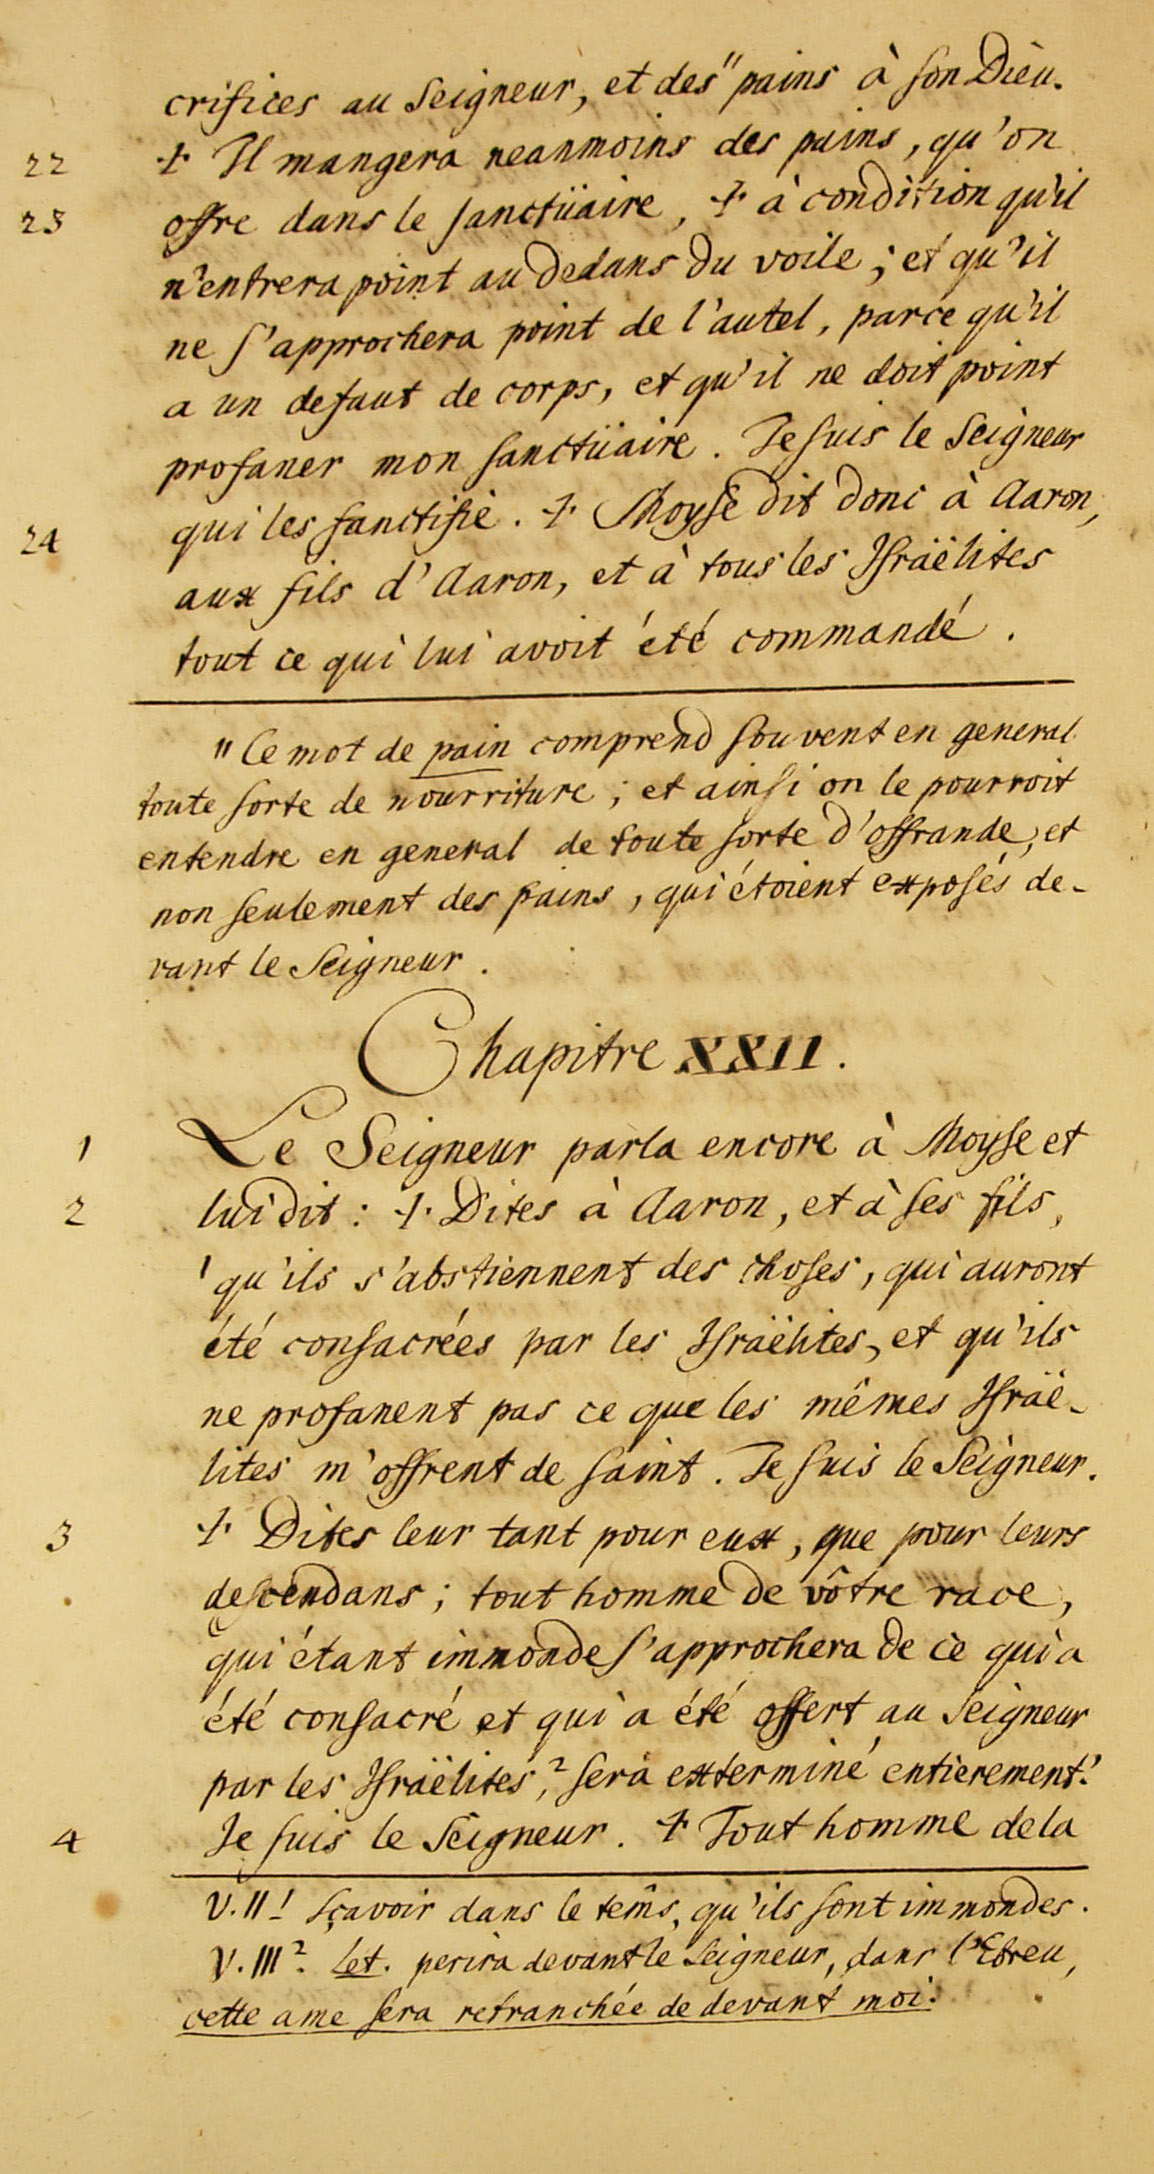 crifices au Seigneur, et des " pains à son Dieu.
22 + Il mangera neanmoins des pains, qu'on
23 offre dans le sanctüaire, + à condition qu'il
n'entrera point au dedans du voile; et qu'il
ne s'approchera point de l'autel, parce qu'il
a un defaut de corps, et qu'il ne doit point
profaner mon sanctüaire. Je suis le Seigneur
24 qui les sanctifie. + Moyse dit donc à Aaron,
aux fils d'Aaron, et à tous les Israëlites
tout ce qui lui avoit été commandé.
" Ce mot de pain comprend souvent en general
toute sorte de nourriture; et ainsi on le pourroit
entendre en general de toute sorte d'offrande, et
non seulement des pains, qui étoient exposés de-
vant le Seigneur.
Chapitre XXII.
1 Le Seigneur parla encore à Moyse et
2 lui dit: + Dites à Aaron, et à ses fils,
1 qu'ils s'abstiennent des choses, qui auront
été consacrées par les Israëlites, et qu'ils
ne profanent pas ce que les mêmes Israë-
lites m'offrent de saint. Je suis le Seigneur.
3 + Dites leur tant pour eux, que pour leurs
descendans; tout homme de vôtre race,
qui étant immonde s'approchera de ce qui a
été consacré et qui a été offert au Seigneur
par les Israëlites, 2 sera exterminé entierement.
4 Je suis le Seigneur. + Tout homme de la
V. II 1 sçavoir dans le tems, qu'ils sont immondes.
V. III 2. Let. perira devant le Seigneur, dans l'Ebreu,
cette ame sera retranchée de devant moi.